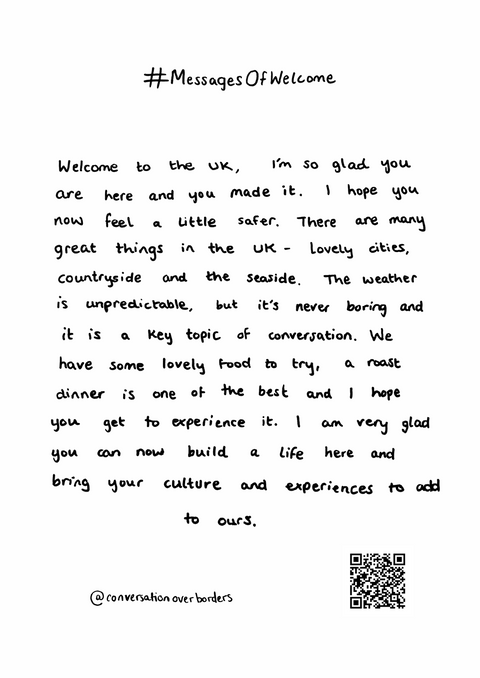 #MessagesOfWelcome
Welcome to the UK, I'm so glad you
are here and you made it. I hope you
now feel a little safer. There are many
great things in the UK - lovely cities,
countryside and the seaside. The weather
is unpredictable, but it's never boring and
it is a key topic of conversation. We
have some lovely food to try, a roast
dinner is one of the best and I hope
you get to experience it. I am very glad
you can now build a life here and
bring your culture and experiences to add
to ours.
@conversationoverborders